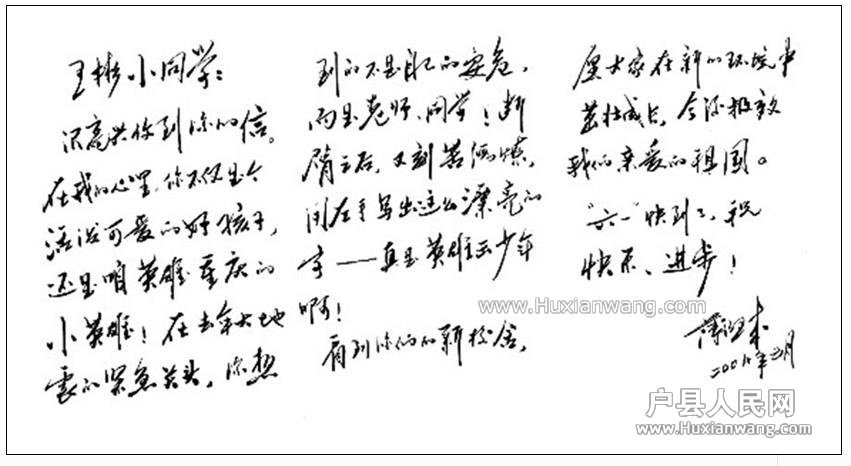 王彬小同学：
很高兴收到你的信。
在我的心里，你不仅是个
活泼可爱的好孩子，
还是咱英雄重庆的
小英雄！在去年大地
震的紧急关头，你想
到的不是自己的安危，
而是老师、同学！断
臂之后，又刻苦锻炼，
用左手写出这么漂亮的
字——真是英雄出少年
啊！
看到你们的新校舍，
愿大家在新的环境中
茁壮成长，今后报效
我们亲爱的祖国。
“六一”快到了，祝
快乐、进步！
薄熙来
二〇〇九年五月
www.Huxianwang.com
户县人民网
www.Huxianwang.com